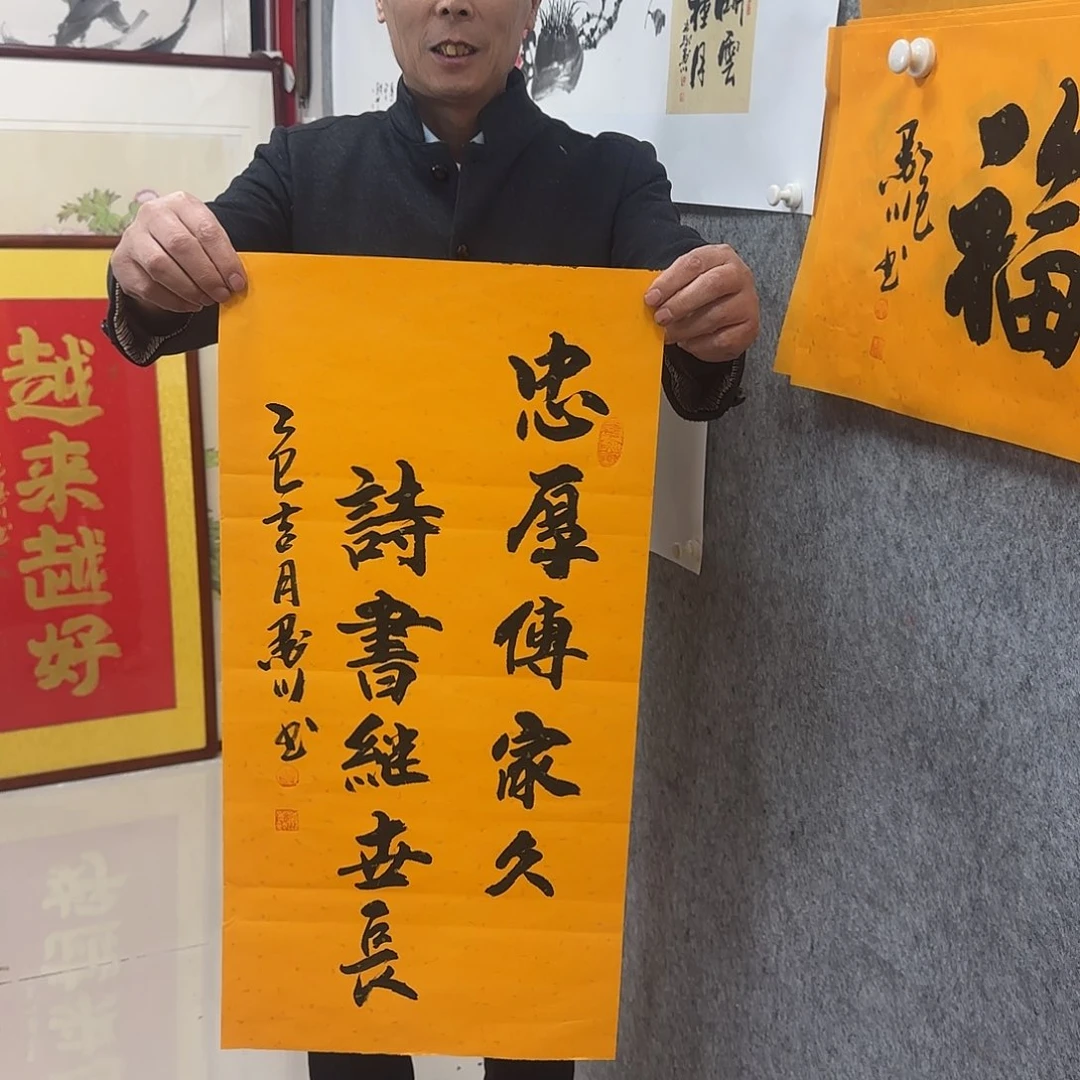 忠厚傳家久
詩書継世長
乙巳吉月墨川书
越来越好
福
乙巳墨川书
雲
種月